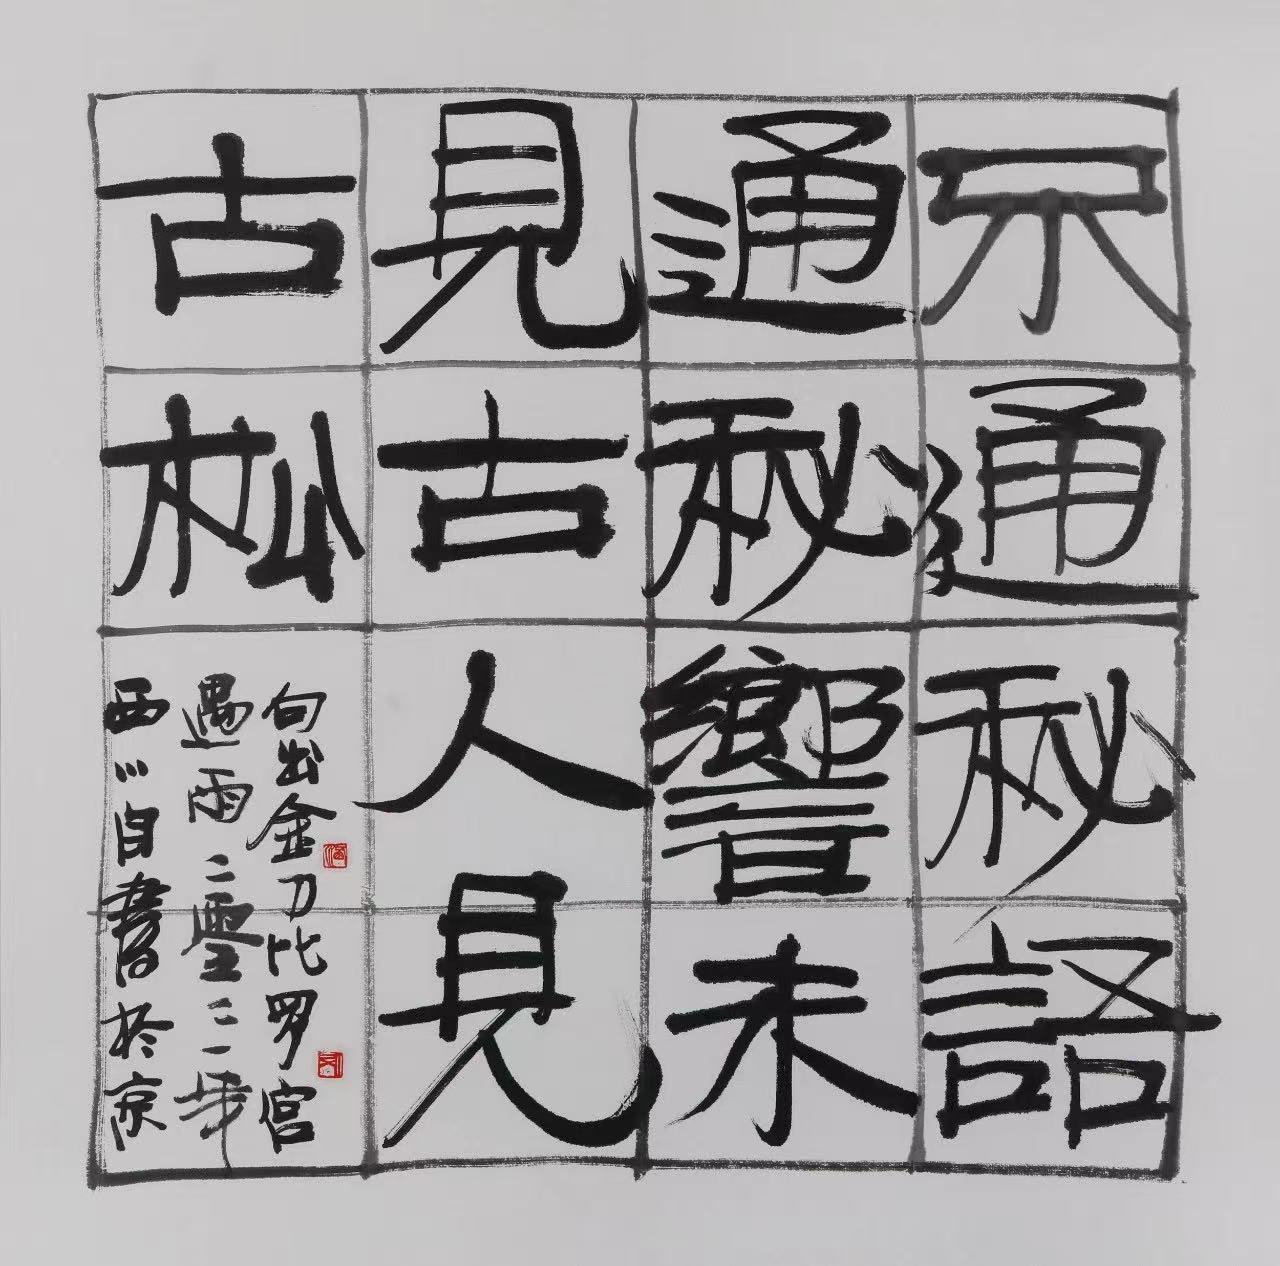 不通秘語
通秘響未
見古人見
古松
句出金刀比罗宫
遇雨二零二一年
西川自書於京